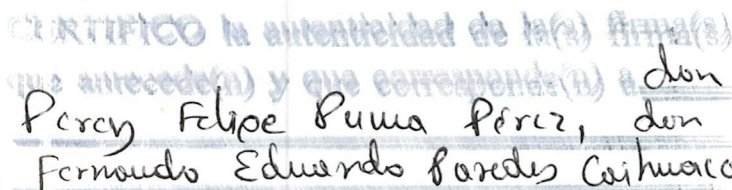 CERTIFICO la autenticidad de la(s) firma(s)
que antecede(n) y que corresponde(n) a don
Percy Felipe Puma Pérez, don
Fernando Eduardo Paredes Caihuaca